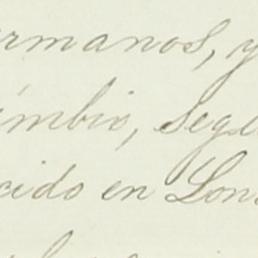 ermanos, y
imbio, segu
cido en Lon